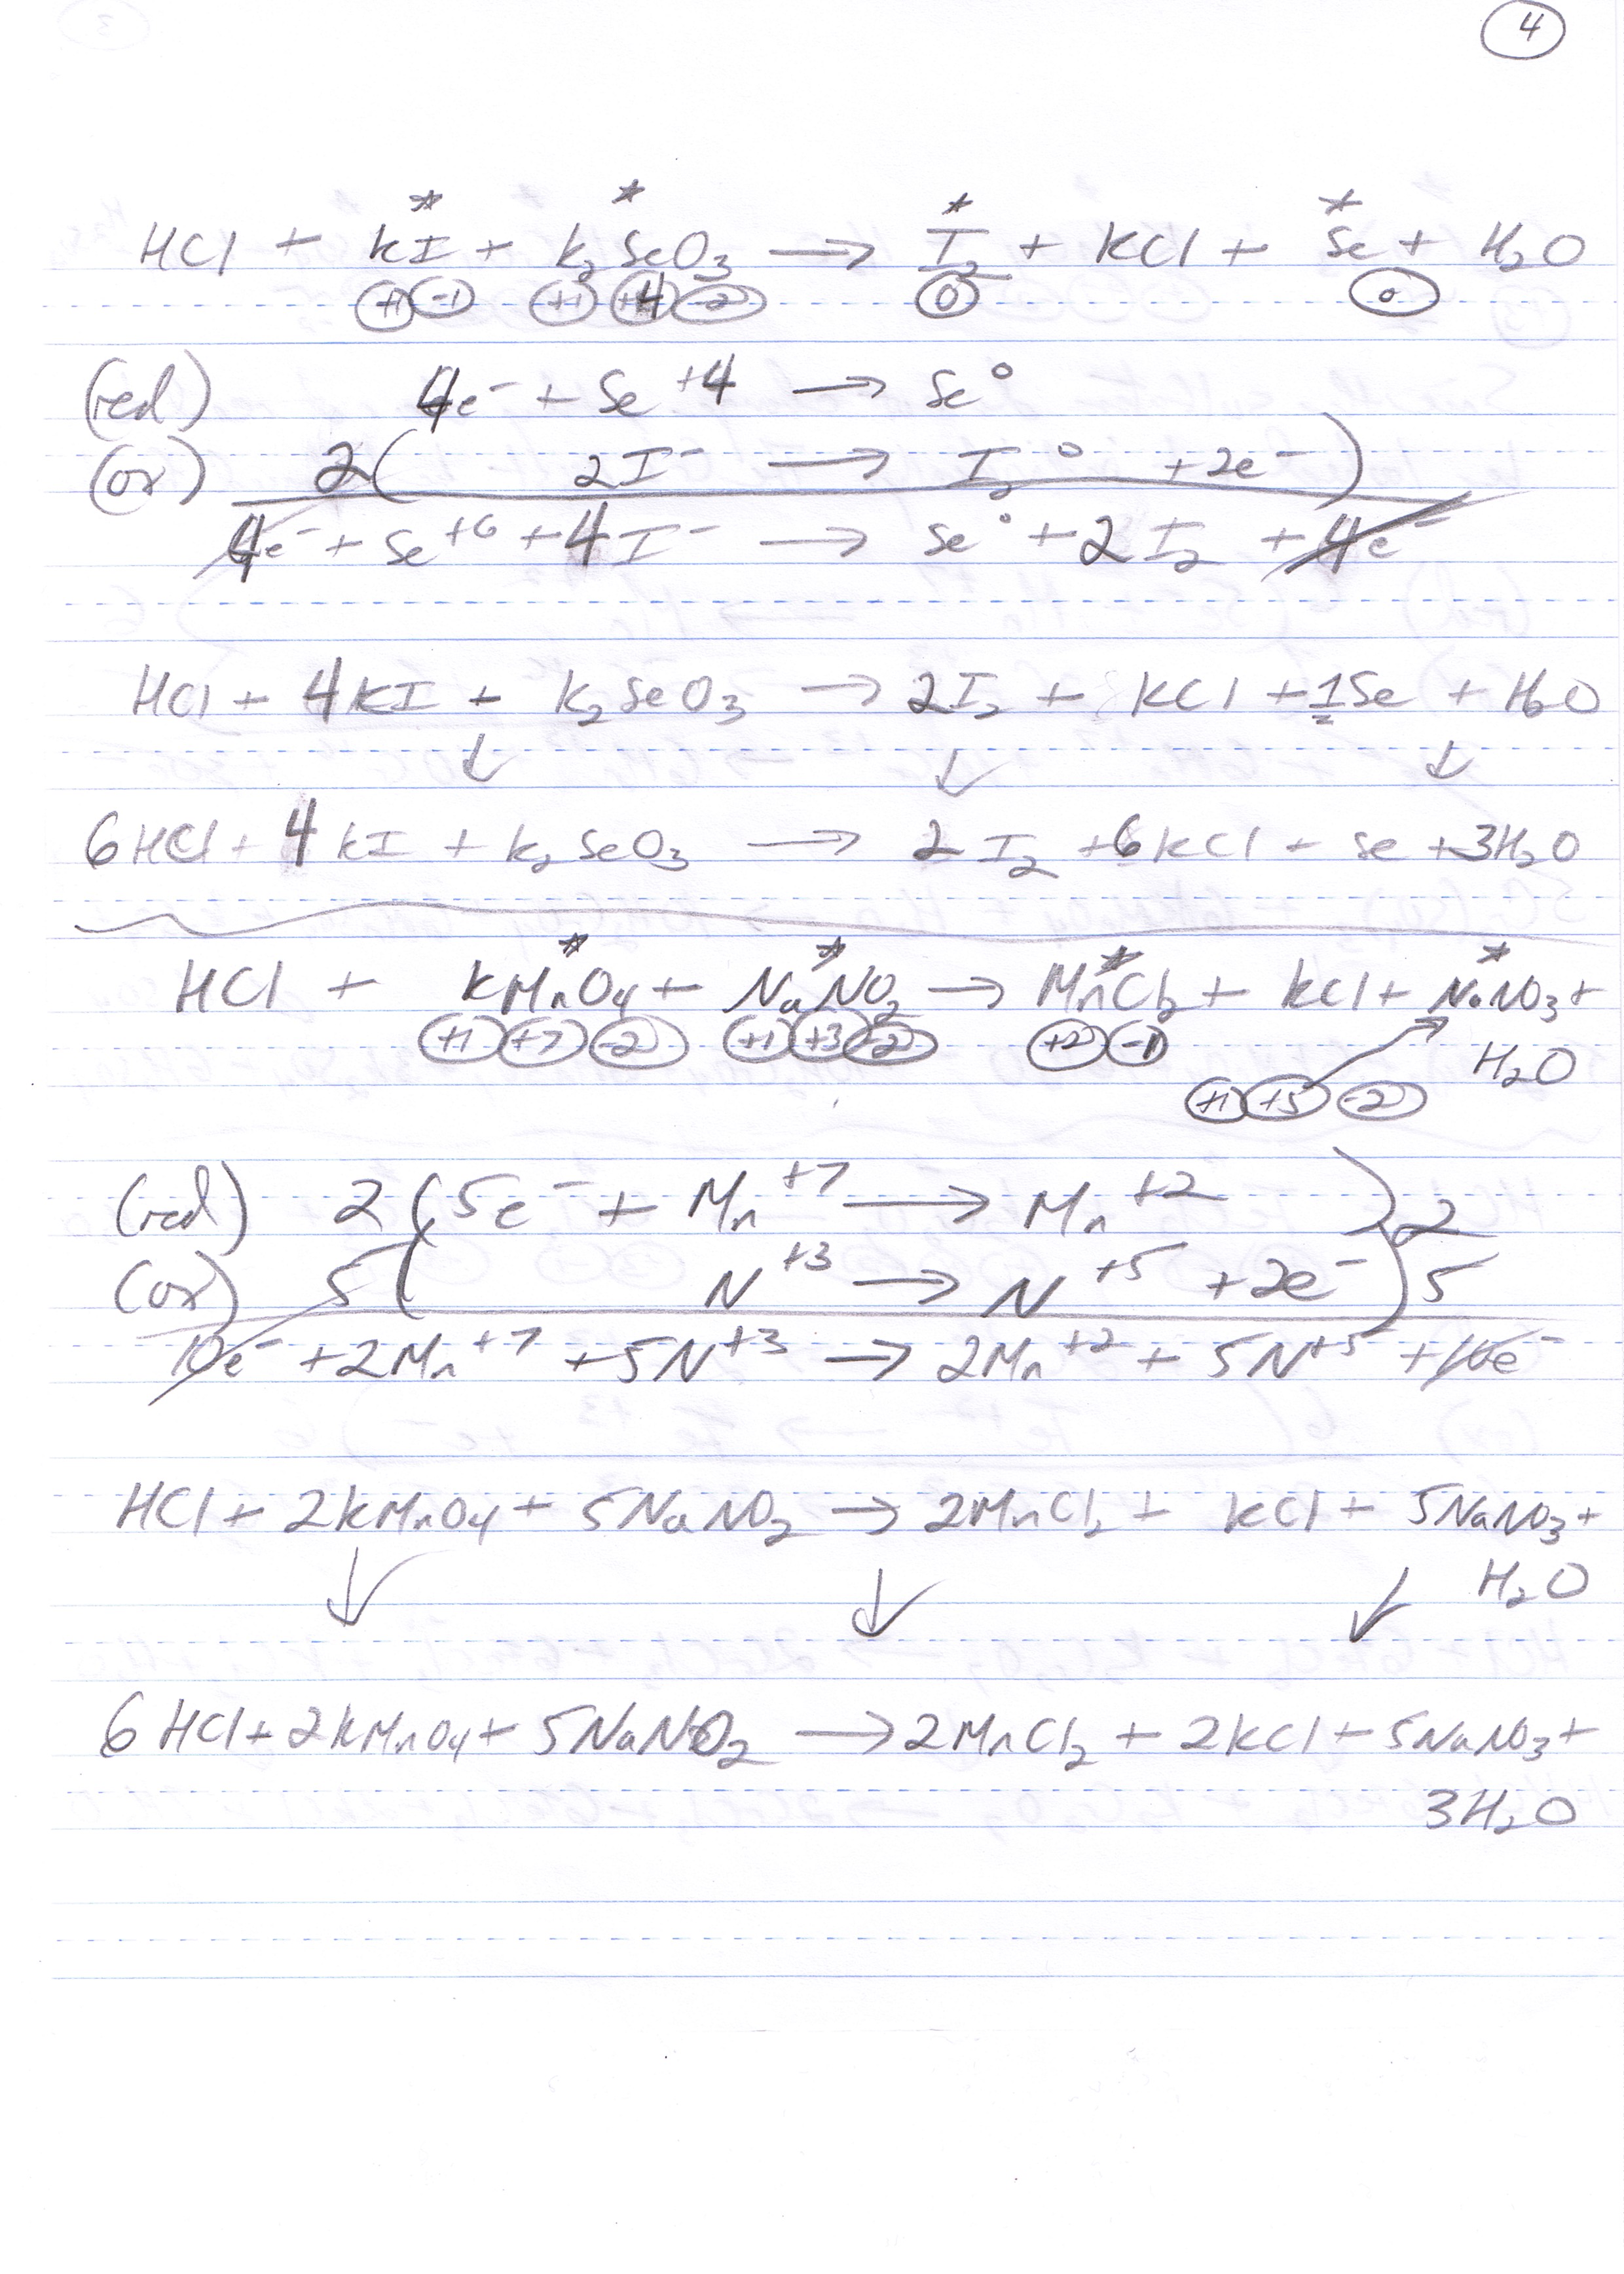 4
* * * *
HCl + KI + K₂SeO₃ → I₂ + KCl + Se + H₂O
+1 -1 +1 +4 -2 0 0
(red) 4e⁻ + Se⁺⁴ → Se⁰
(ox) 2( 2I⁻ → I₂⁰ + 2e⁻ )
4e⁻ + Se⁺⁶ + 4I⁻ → Se⁰ + 2I₂ + 4e⁻
HCl + 4KI + K₂SeO₃ → 2I₂ + KCl + 1Se + H₂O
↓ ↓ ↓
6HCl + 4KI + K₂SeO₃ → 2I₂ + 6KCl + Se + 3H₂O
* * * *
HCl + KMnO₄ + NaNO₂ → MnCl₂ + KCl + NaNO₃ +
+1 +7 -2 +1 +3 -2 +2 -1
H₂O
+1 +5 -2
(red) 2( 5e⁻ + Mn⁺⁷ → Mn⁺² )2
(ox) 5( N⁺³ → N⁺⁵ + 2e⁻ )5
10e⁻ + 2Mn⁺⁷ + 5N⁺³ → 2Mn⁺² + 5N⁺⁵ + 10e⁻
HCl + 2KMnO₄ + 5NaNO₂ → 2MnCl₂ + KCl + 5NaNO₃ +
H₂O
↓ ↓ ↓
6HCl + 2KMnO₄ + 5NaNO₂ → 2MnCl₂ + 2KCl + 5NaNO₃ +
3H₂O